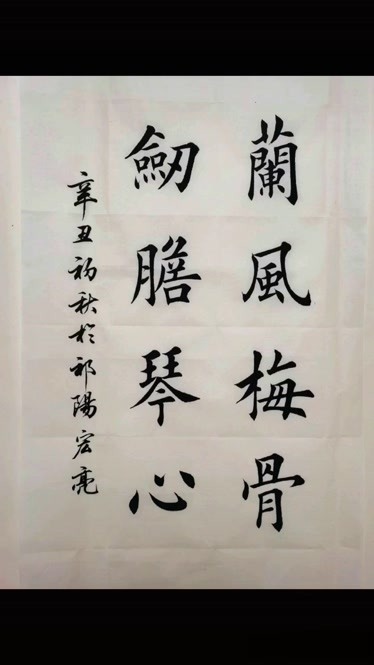 蘭風梅骨
劒膽琴心
辛丑初秋於祁陽宏亮